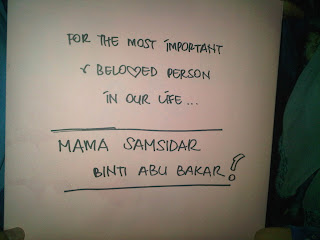 FOR THE MOST IMPORTANT
& BELOVED PERSON
IN OUR LIFE...
MAMA SAMSIDAR
BINTI ABU BAKAR!